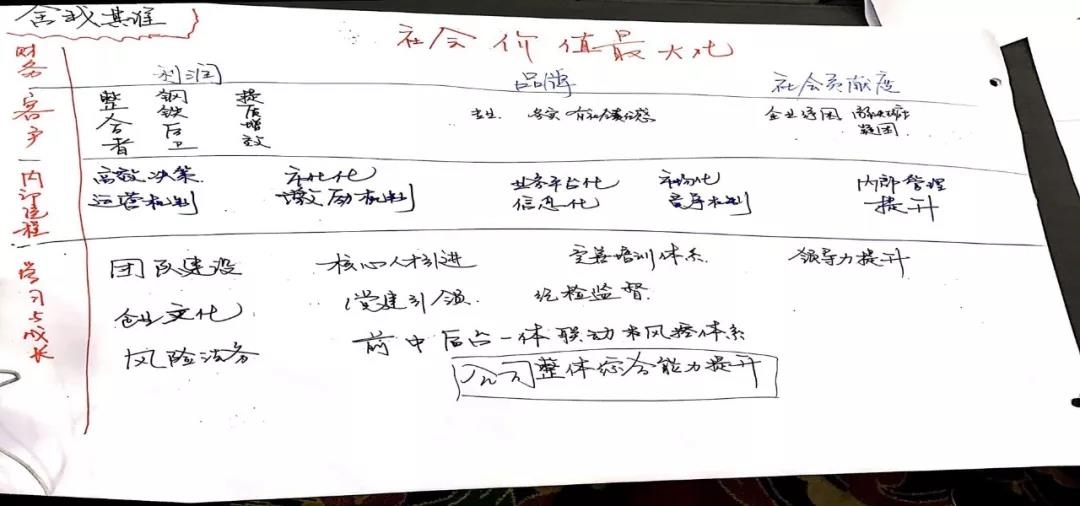 舍我其谁
社会价值最大化
财务
利润 品牌 社会贡献度
客户
整合者 钢铁后卫 提质增效
专业 务实 有社会责任感
企业纾困
内部流程
高效决策 市场化 业务平台化 市场化 内部管理
运营机制 激励机制 信息化 竞争机制 提升
学习与成长
团队建设 核心人才引进 完善培训体系 领导力提升
企业文化 党建引领 纪检监督
风险法务 前中后台一体联动 风控体系
公司整体综合能力提升